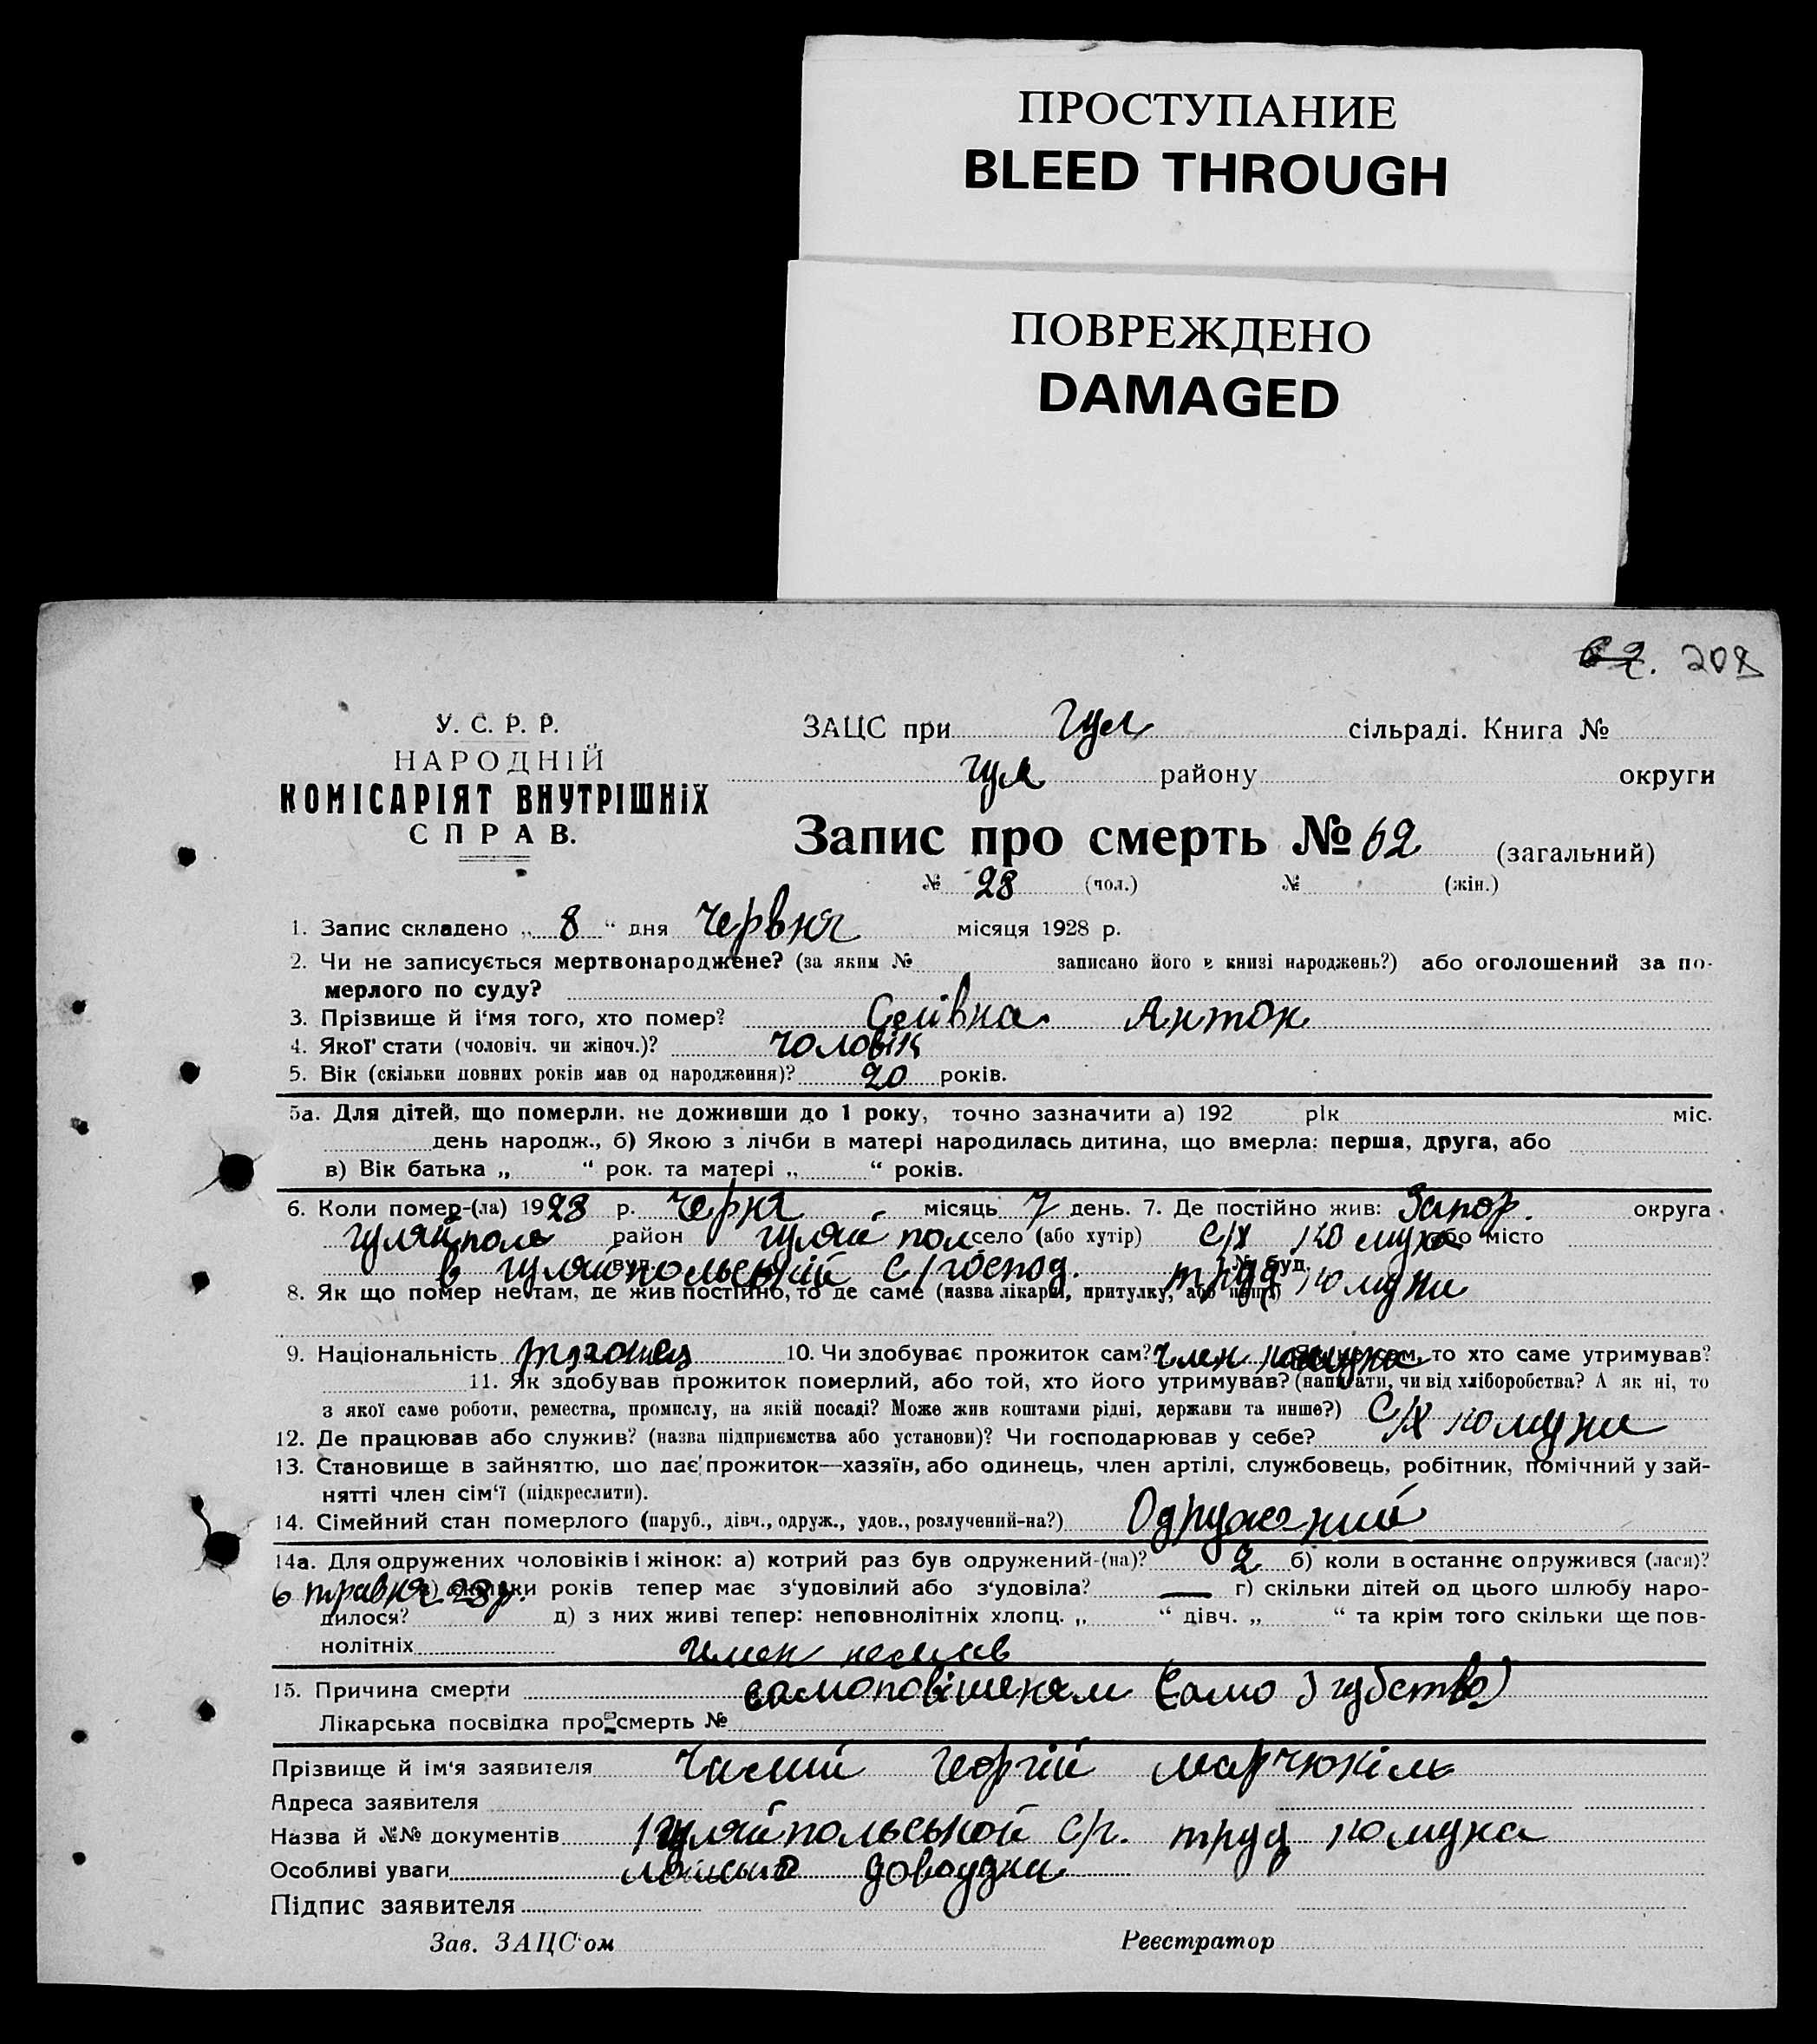 ПРОСТУПАНИЕ
BLEED THROUGH
ПОВРЕЖДЕНО
DAMAGED
62. 208
У. С. Р. Р.
НАРОДНІЙ
КОМІСАРІЯТ ВНУТРІШНІХ
СПРАВ.
ЗАЦС при Гул сільраді. Книга №
гул району округи
Запис про смерть № 62 (загальний)
№ 28 (чол.) № (жін.)
1. Запис складено „ 8 “ дня червня місяця 1928 р.
2. Чи не записується мертвонароджене? (за яким № записано його в книзі народжень?) або оголошений за по-
мерлого по суду?
3. Прізвище й і'мя того, хто помер? Антон
4. Якої статі (чоловіч. чи жіноч.)? чоловік
5. Вік (скільки повних років мав од народження)? 20 років.
5а. Для дітей, що померли, не доживши до 1 року, точно зазначити а) 192 рік міс.
день народж., б) Якою з лічби в матері народилась дитина, що вмерла: перша, друга, або
в) Вік батька „ “ рок. та матері „ “ років.
6. Коли помер-(ла) 1928 р. черня місяць 7 день. 7. Де постійно жив: Запор. округа
гуляйполе район гуляй пол село (або хутір) с/х комуна або місто
вул. № буд.
в гуляйпольській с/господ. труд комуни
8. Як що помер не там, де жив постійно, то де саме (назва лікарні, притулку, або инш.)
9. Національність 10. Чи здобуває прожиток сам? член комуни сам, то хто саме утримував?
11. Як здобував прожиток померлий, або той, хто його утримував? (написати, чи від хліборобства? А як ні, то
з якої саме роботи, ремества, промислу, на якій посаді? Може жив коштами рідні, держави та инше?)
12. Де працював або служив? (назва підприємства або установи)? Чи господарював у себе? с/х комуни
13. Становище в зайняттю, що дає прожиток—хазяїн, або одинець, член артілі, службовець, робітник, помічний у зай-
нятті член сім'ї (підкреслити).
14. Сімейний стан померлого (паруб., дівч., одруж., удов., розлучений-на?) Одружений
14а. Для одружених чоловіків і жінок: а) котрий раз був одружений-(на)? 2 б) коли востаннє одружився (лася)?
6 травня 28 р. в) скільки років тепер має з'удовілий або з'удовіла? — г) скільки дітей од цього шлюбу наро-
дилося? д) з них живі тепер: неповнолітніх хлопц. „ “ дівч. „ “ та крім того скільки ще пов-
нолітніх
15. Причина смерти самоповішеням (само згубство)
Лікарська посвідка про смерть №
Прізвище й ім'я заявителя Георгій
Адреса заявителя
Назва й №№ документів гуляйпольской с/г. труд комуна
Особливі уваги
Підпис заявителя
Зав. ЗАЦС'ом Реєстратор